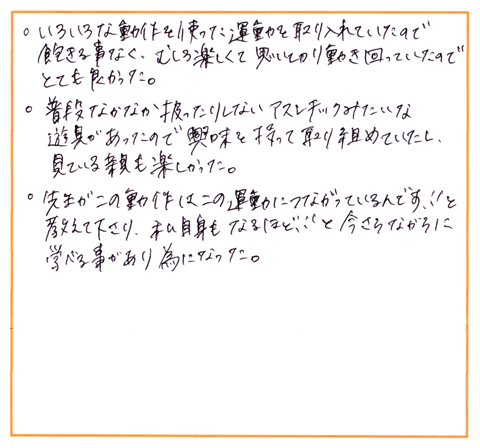 ○ いろいろな動作を使った運動を取り入れていたので
飽きる事なく、むしろ楽しくて思いっきり動き回っていたので
とても良かった。
○ 普段なかなか扱ったりしないアスレチックみたいな
遊具があったので興味を持って取り組めていたし、
見ている親も楽しかった。
○ 先生がこの動作はこの運動につながっているんです!!と
教えて下さり、私自身もなるほど!!と今さらながらに
学べる事があり為になった。